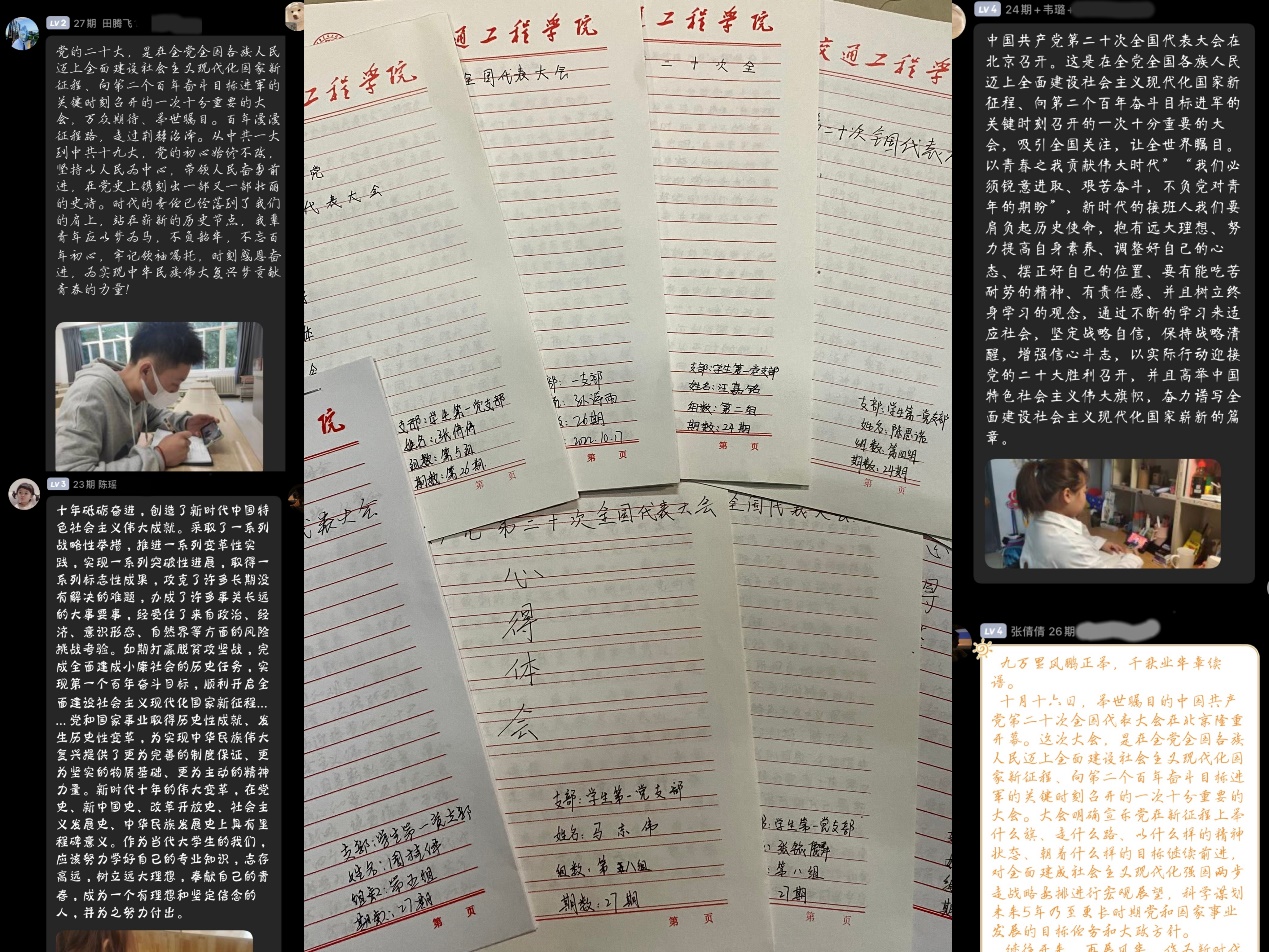 LV2 27期 田腾飞
党的二十大，是在全党全国各族人民
迈上全面建设社会主义现代化国家新
征程、向第二个百年奋斗目标进军的
关键时刻召开的一次十分重要的大
会，万众期待、举世瞩目。百年漫漫
征程路，走过荆棘沼泽。从中共一大
到中共十九大，党的初心始终不改，
坚持以人民为中心，带领人民奋勇前
进，在党史上镌刻出一部又一部壮丽
的史诗。时代的责任已经落到了我们
的肩上，站在崭新的历史节点，我辈
青年应以梦为马，不负韶华，不忘百
年初心，牢记领袖嘱托，时刻感恩奋
进，为实现中华民族伟大复兴梦贡献
青春的力量!
LV3 23期 陈瑶
十年砥砺奋进，创造了新时代中国特
色社会主义伟大成就。采取了一系列
战略性举措，推进一系列变革性实
践，实现一系列突破性进展，取得一
系列标志性成果，攻克了许多长期没
有解决的难题，办成了许多事关长远
的大事要事，经受住了来自政治、经
济、意识形态、自然界等方面的风险
挑战考验。如期打赢脱贫攻坚战，完
成全面建成小康社会的历史任务，实
现第一个百年奋斗目标，顺利开启全
面建设社会主义现代化国家新征程…
…党和国家事业取得历史性成就、发
生历史性变革，为实现中华民族伟大
复兴提供了更为完善的制度保证、更
为坚实的物质基础、更为主动的精神
力量。新时代十年的伟大变革，在党
史、新中国史、改革开放史、社会主
义发展史、中华民族发展史上具有里
程碑意义。作为当代大学生的我们，
应该努力学好自己的专业知识，志存
高远，树立远大理想，奉献自己的青
春，成为一个有理想和坚定信念的
人，并为之努力付出。
工程学院
党
代表大会
体
会
支部：学生第一党支部
姓名：张倩倩
组数：第五组
期数：第26期
第 页
通工程学院
全国代表大会
一支部
26期
2022.10.17
第 页
工程学院
二十次全
支部：学生第一党支部
姓名：汪嘉铭
组数：第二组
期数：24期
第 页
交通工程学
二十次全国代表大
支部：学生第一党支部
姓名：陈思诺
组数：第四组
期数：24期
第 页
院
代表大会
支部：学生第一党支部
组数：第五组
期数：27期
第 页
第二十次全国代表大会
心
得
体
会
支部：学生第一党支部
姓名：马东伟
组数：第五八组
期数：27期
第 页
全国代表大会
学生第一党支部
第八组
27期
第 页
LV4 24期+韦璐+
中国共产党第二十次全国代表大会在
北京召开。这是在全党全国各族人民
迈上全面建设社会主义现代化国家新
征程、向第二个百年奋斗目标进军的
关键时刻召开的一次十分重要的大
会，吸引全国关注，让全世界瞩目。
以青春之我贡献伟大时代”“我们必
须锐意进取、艰苦奋斗，不负党对青
年的期盼”，新时代的接班人我们要
肩负起历史使命，抱有远大理想、努
力提高自身素养、调整好自己的心
态、摆正好自己的位置、要有能吃苦
耐劳的精神、有责任感、并且树立终
身学习的观念，通过不断的学习来适
应社会，坚定战略自信，保持战略清
醒，增强信心斗志，以实际行动迎接
党的二十大胜利召开，并且高举中国
特色社会主义伟大旗帜，奋力谱写全
面建设社会主义现代化国家崭新的篇
章。
LV4 张倩倩 26期
九万里风鹏正举，千秋业华章续
谱。
十月十六日，举世瞩目的中国共产
党第二十次全国代表大会在北京隆重
开幕。这次大会，是在全党全国各族
人民迈上全面建设社会主义现代化国
家新征程、向第二个百年奋斗目标进
军的关键时刻召开的一次十分重要的
大会。大会明确宣示党在新征程上举
什么旗、走什么路、以什么样的精神
状态、朝着什么样的目标继续前进，
对全面建成社会主义现代化强国两步
走战略安排进行宏观展望，科学谋划
未来5年乃至更长时期党和国家事业
发展的目标任务和大政方针。